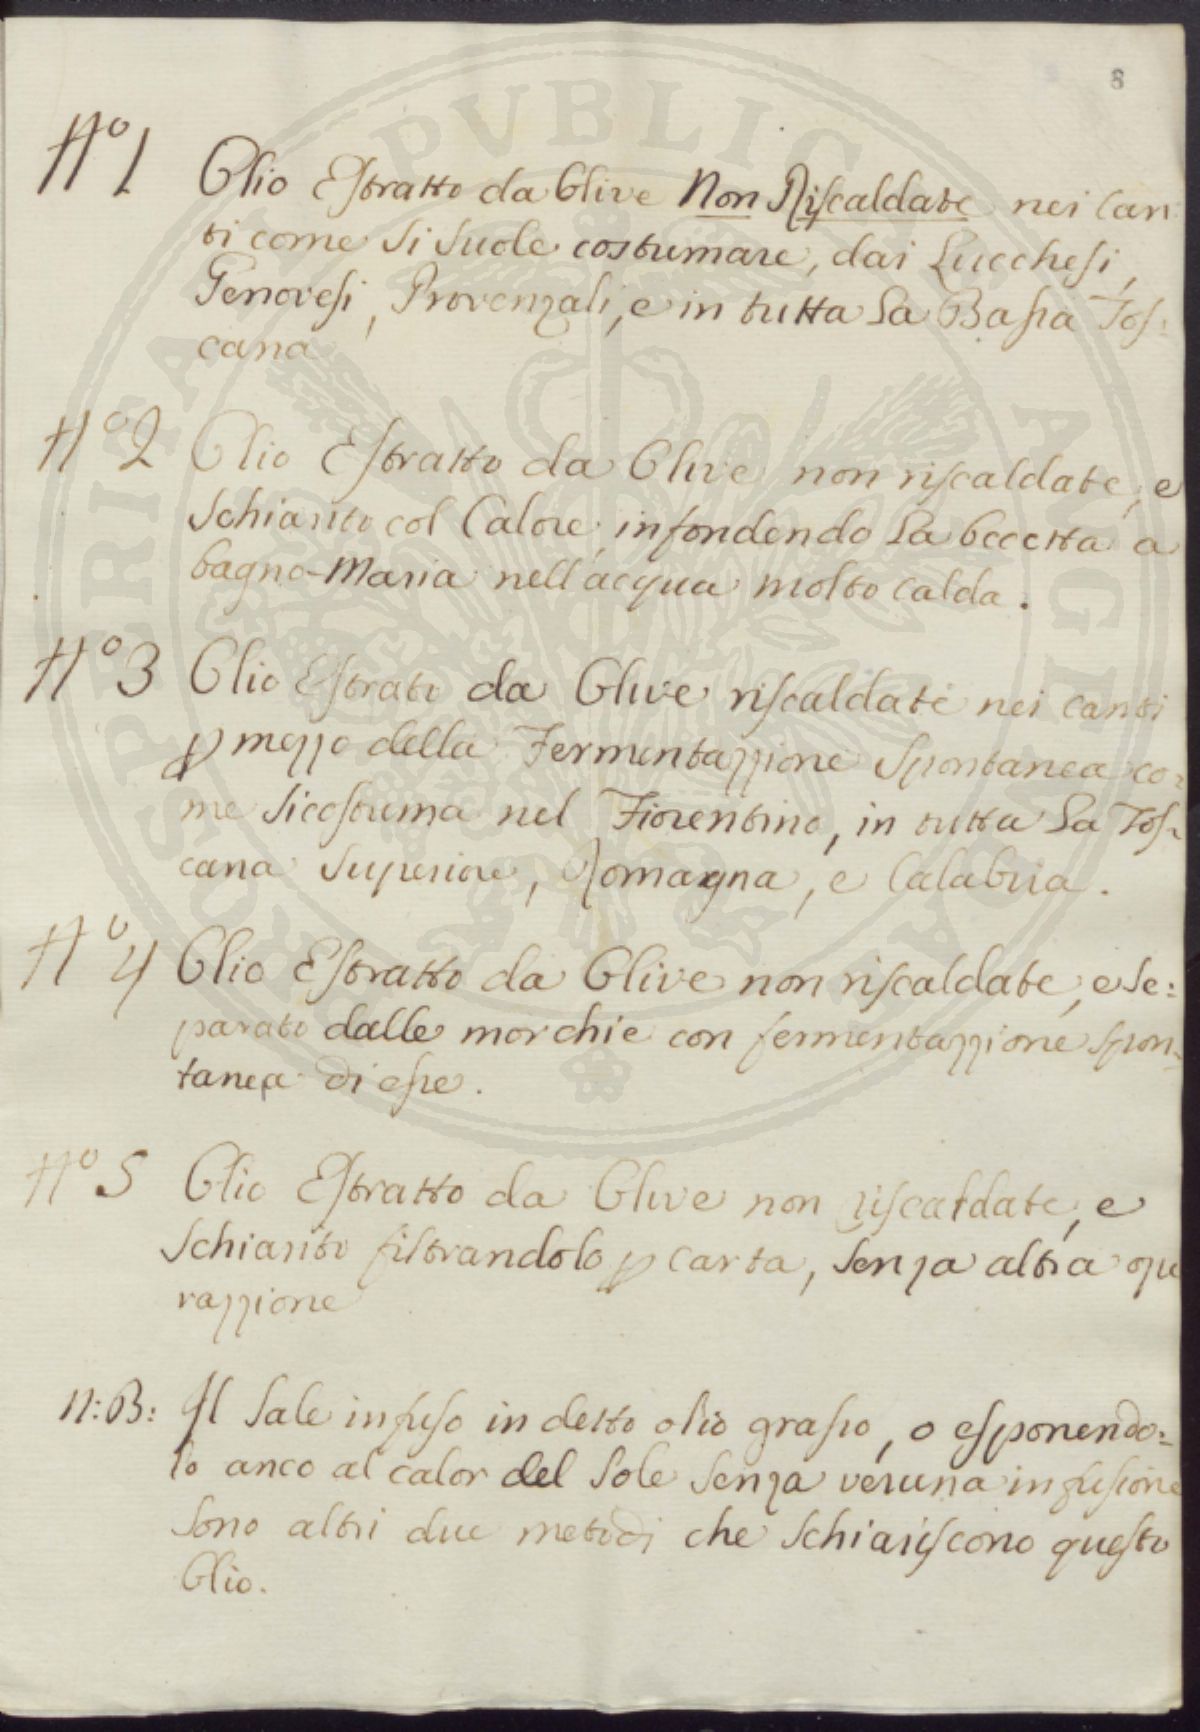 8
N.º 1 Olio Estratto da Olive Non Riscaldate nei Can:
ti come si suole costumare, dai Lucchesi,
Genovesi, Provenzali, e in tutta La Bassa Tos:
cana
N.º 2 Olio Estratto da Olive non riscaldate, e
Schiarito col Calore, infondendo La boccetta a
bagno-Maria nell'acqua molto calda.
N.º 3 Olio Estrato da Olive riscaldate nei canti
p mezzo della Fermentazzione Spontanea co:
me si costuma nel Fiorentino, in tutta La Tos:
cana Superiore, Romagna, e Calabria.
N.º 4 Olio Estratto da Olive non riscaldate, e Se:
parato dalle morchie con fermentazzione Spon:
tanea di esse.
N.º 5 Olio Estratto da Olive non riscaldate, e
Schiarito filtrandolo p carta, Senza altra ope
razzione
N:B: Il Sale infuso in detto olio grasso, o esponendo:
lo anco al calor del Sole Senza veruna infusione
Sono altri due metodi che Schiariscono questo
Olio.
PROSPERITAS PVBLICA AVGENDA